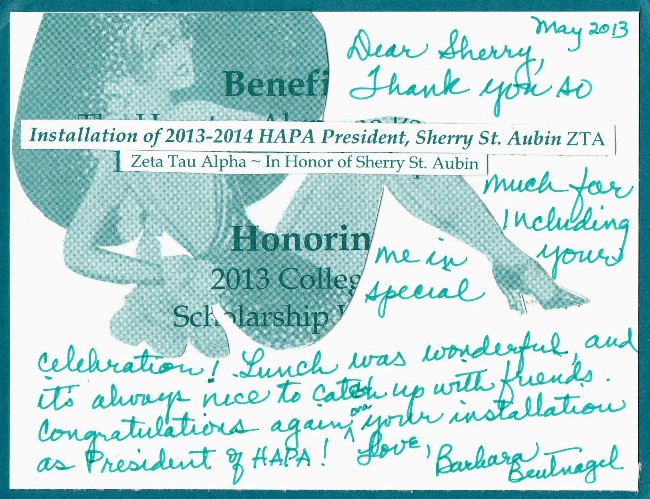 May 2013
Dear Sherry,
Thank you so
Benefi
Installation of 2013-2014 HAPA President, Sherry St. Aubin ZTA
Zeta Tau Alpha ~ In Honor of Sherry St. Aubin
much for
Including
me in your
special
Honorin
2013 Colleg
Scholarship
celebration! Lunch was wonderful, and
it's always nice to catch up with friends.
Congratulations again on your installation
as President of HAPA! Love,
Barbara
Beutnagel